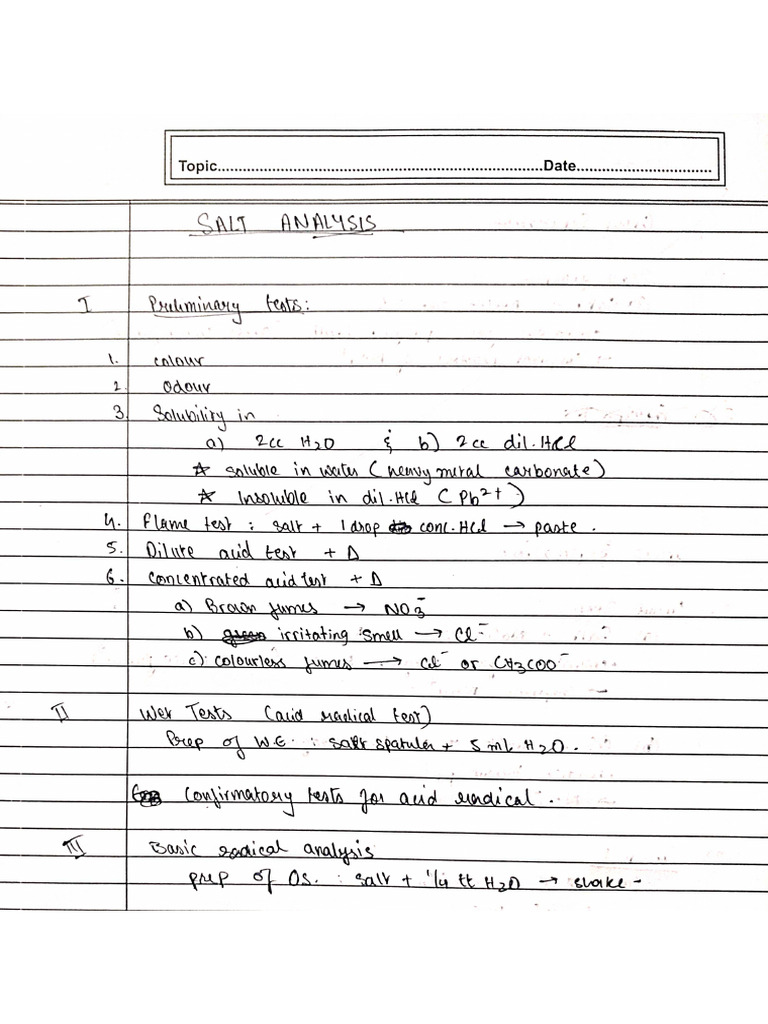 Topic..............................Date..............................
SALT ANALYSIS
I Preliminary tests:
1. colour
2. Odour
3. Solubility in
a) 2cc H2O & b) 2cc dil.HCl
☆ soluble in water (heavy metal carbonate)
☆ Insoluble in dil.HCl (Pb²⁺)
4. Flame test : salt + 1 drop conc.HCl → paste.
5. Dilute acid test + Δ
6. Concentrated acid test + Δ
a) Brown fumes → NO3⁻
b) irritating smell → Cl⁻
c) colourless fumes → Cl⁻ or CH3COO⁻
II Wet Tests (acid radical test)
Prep of W.E. : salt spatula + 5 mL H2O.
Confirmatory tests for acid radical.
III Basic radical analysis
prep of OS. : salt + 1/4 tt H2O → shake -